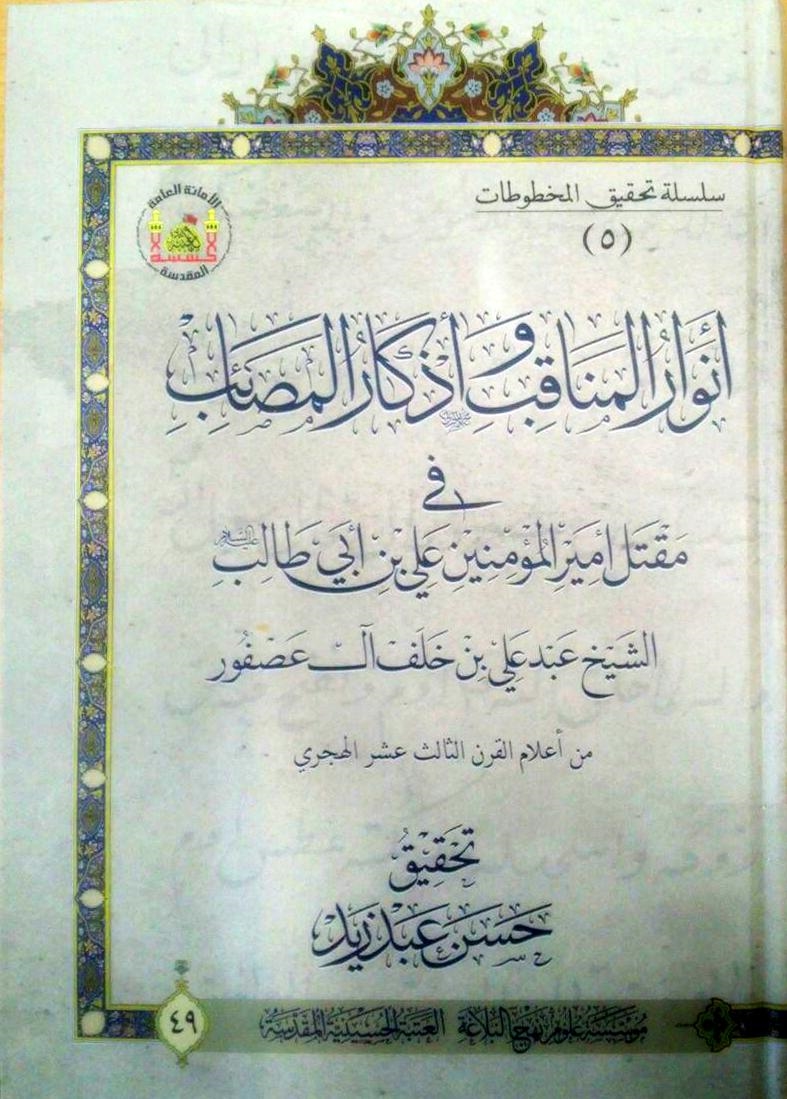 سلسلة تحقيق المخطوطات
(٥)
الأمانة العامة
للعتبة
الحسينية
المقدسة
أنوار المناقب و أذكار المصائب
في
مقتل أمير المؤمنين علي بن أبي طالب عليه السلام
الشيخ عبد علي بن خلف آل عصفور
من أعلام القرن الثالث عشر الهجري
تحقيق
حسن عبد زيد
مؤسسة علوم نهج البلاغة العتبة الحسينية المقدسة
٤٩